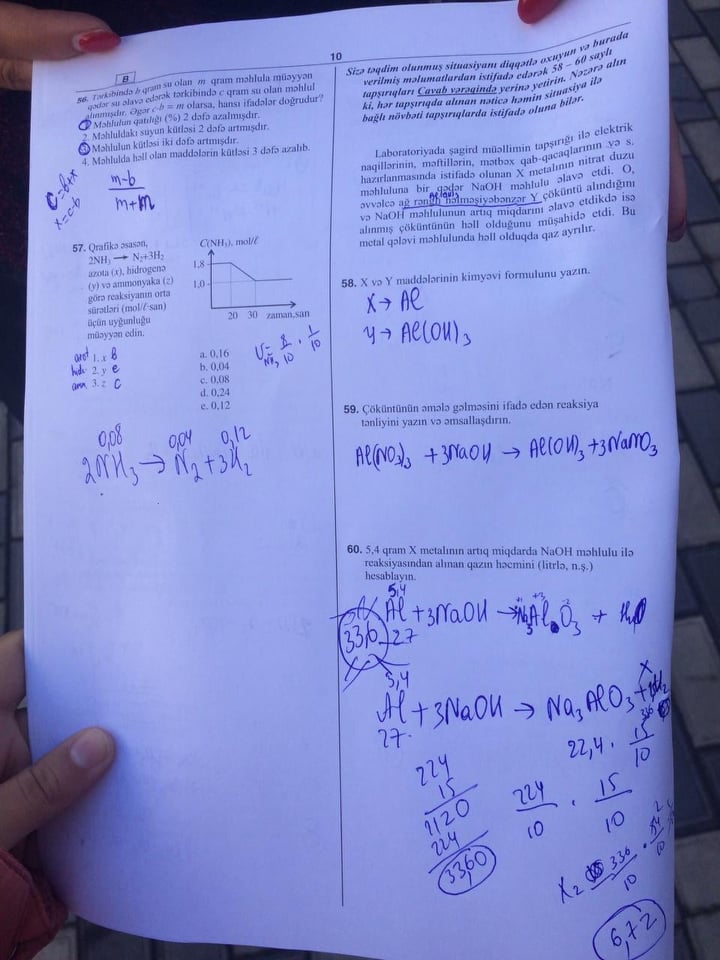 10
B
56. Tərkibində b qram su olan m qram məhlula müəyyən
qədər su əlavə edərək tərkibində c qram su olan məhlul
alınmışdır. Əgər c-b = m olarsa, hansı ifadələr doğrudur?
1. Məhlulun qatılığı (%) 2 dəfə azalmışdır.
2. Məhluldakı suyun kütləsi 2 dəfə artmışdır.
3. Məhlulun kütləsi iki dəfə artmışdır.
4. Məhlulda həll olan maddələrin kütləsi 3 dəfə azalıb.
c=b+x
x=c-b
m-b
m+m
57. Qrafikə əsasən,
2NH₃ → N₂+3H₂
azota (x), hidrogenə
(y) və ammonyaka (z)
görə reaksiyanın orta
sürətləri (mol/ℓ·san)
üçün uyğunluğu
müəyyən edin.
C(NH₃), mol/ℓ
1,8
1,0
20 30 zaman,san
azot 1. x B
hidr 2. y e
am. 3. z C
a. 0,16
b. 0,04
c. 0,08
d. 0,24
e. 0,12
V= 8/10 · 1/10
NH₃
0,08 0,04 0,12
2NH₃ → N₂ + 3H₂
Sizə təqdim olunmuş situasiyanı diqqətlə oxuyun və burada
verilmiş məlumatlardan istifadə edərək 58 – 60 saylı
tapşırıqları Cavab vərəqində yerinə yetirin. Nəzərə alın
ki, hər tapşırıqda alınan nəticə həmin situasiya ilə
bağlı növbəti tapşırıqlarda istifadə oluna bilər.
Laboratoriyada şagird müəllimin tapşırığı ilə elektrik
naqillərinin, məftillərin, mətbəx qab-qacaqlarının və s.
hazırlanmasında istifadə olunan X metalının nitrat duzu
məhluluna bir qədər NaOH məhlulu əlavə etdi. O,
Al(OH)₃
əvvəlcə ağ rəngli həlməşiyəbənzər Y çöküntü alındığını
və NaOH məhlulunun artıq miqdarını əlavə etdikdə isə
alınmış çöküntünün həll olduğunu müşahidə etdi. Bu
metal qələvi məhlulunda həll olduqda qaz ayrılır.
58. X və Y maddələrinin kimyəvi formulunu yazın.
X → Al
Y → Al(OH)₃
59. Çöküntünün əmələ gəlməsini ifadə edən reaksiya
tənliyini yazın və əmsallaşdırın.
Al(NO₃)₃ + 3NaOH → Al(OH)₃ + 3NaNO₃
60. 5,4 qram X metalının artıq miqdarda NaOH məhlulu ilə
reaksiyasından alınan qazın həcmini (litrlə, n.ş.)
hesablayın.
5,4
Al + 3NaOH → Na₃AlO₃ + H₂O
33,6
27
5,4 x
Al + 3NaOH → Na₃AlO₃ + H₂
27
22,4 · 15/10
224
15
1120
224
3360
224/10 · 15/10
336/10
6,72